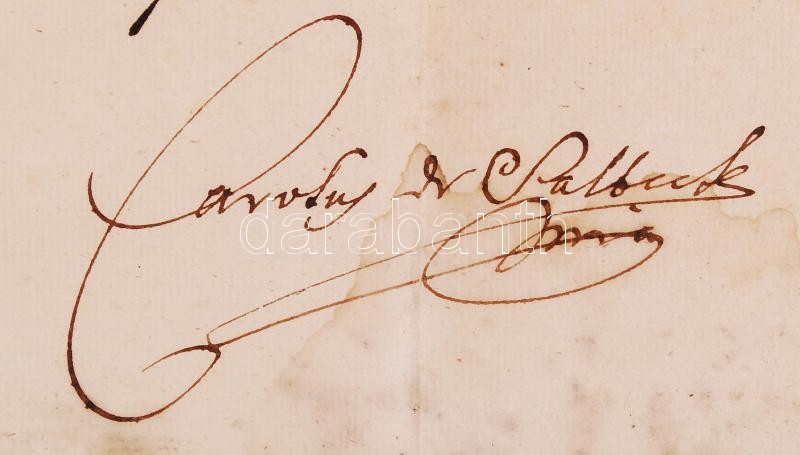 Carolus de Salbeck
darabanth